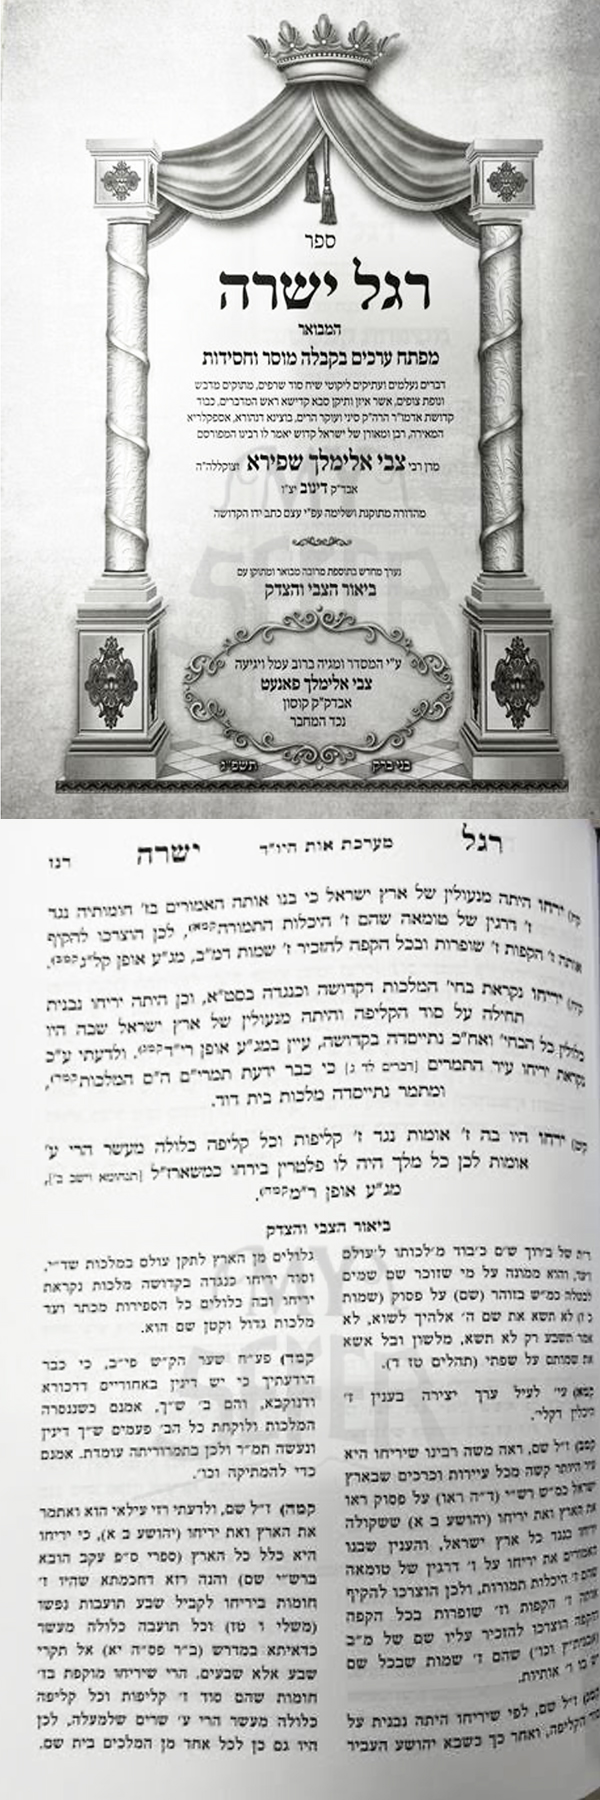 ספר
רגל ישרה
המבואר
מפתח ערכים בקבלה מוסר וחסידות
דברים נעלמים ועתיקים ליקוטי שיח סוד שרפים, מתוקים מדבש
ונופת צופים, אשר איזן ותיקן סבא קדישא ראש המדברים, כבוד
קדושת אדמו"ר הרה"ק סיני ועוקר הרים, בוצינא דנהורא, אספקלריא
המאירה, רבן ומאורן של ישראל קדוש יאמר לו רבינו המפורסם
מרן רבי צבי אלימלך שפירא זצוקללה"ה
אבד"ק דינוב יצ"ו
מהדורה מתוקנת ושלימה עפ"י עצם כתב ידו הקדושה
נערך מחדש בתוספת מרובה מבואר ומתוקן עם
ביאור הצבי והצדק
ע"י המסדר ומגיה ברוב עמל ויגיעה
צבי אלימלך פאנעט
אבדק"ק קוסון
נכד המחבר
בני ברק תשפ"ג
רגל מערכת אות היו"ד ישרה רנז
יריחו היתה מנעולין של ארץ ישראל כי בנו אותה האמורים בז' חומותיה נגד
ז' דרגין של טומאה שהם ז' היכלות התמורה(קמא), לכן הוצרכו להקיף
אותה ז' הקפות ז' שופרות ובכל הקפה להזכיר ז' שמות דמ"ב, מג"ע אופן קל"ג(קמב).
יריחו נקראת בחי' המלכות דקדושה וכנגדה בסט"א, וכן היתה יריחו נבנית
תחילה על סוד הקליפה והיתה מנעולין של ארץ ישראל שבה היו
כלולין כל הבחי' ואח"כ נתייסדה בקדושה, עיין במג"ע אופן רי"ד(קמג). ולדעתי ע"כ
נקראת יריחו עיר התמרים [דברים לד ג] כי כבר ידעת תמרי"ם ה"ס המלכות(קמד),
ומתמר נתייסדה מלכות בית דוד.
יריחו היו בה ז' אומות נגד ז' קליפות וכל קליפה כלולה מעשר הרי ע'
אומות לכן כל מלך היה לו פלטרין בירחו כמשארז"ל [תנחומא וישב ב'],
מג"ע אופן ר"מ(קמה).
ביאור הצבי והצדק
ר"ת של ב'רוך ש'ם כ'בוד מ'לכותו ל'עולם
ו'עד, והוא ממונה על מי שזוכר שם שמים
לבטלה כמ"ש בזוהר (שם) על פסוק (שמות
כ ז) לא תשא את שם ה' אלהיך לשוא, לא
אמר תשבע רק לא תשא, מלשון ובל אשא
את שמותם על שפתי (תהלים טז ד).
קמא) עי' לעיל ערך יצירה בענין ז'
היכלין דקלי'.
קמב) ז"ל שם, ראה משה רבינו שיריחו היא
עיר היותר קשה מכל עיירות וכרכים שבארץ
ישראל כמ"ש רש"י (ד"ה ראו) על פסוק ראו
את הארץ ואת יריחו (יהושע ב א) ששקולה
יריחו כנגד כל ארץ ישראל, והענין שבנו
האמוריים את יריחו על ז' דרגין של טומאה
שהם ז' היכלות תמורות, ולכן הוצרכו להקיף
אותה ז' הקפות וז' שופרות בכל הקפה
והקפה הוצרכו להזכיר עליו שם של מ"ב
(אבגית"ץ וכו') שהם ז' שמות שבכל שם
יש בו ו' אותיות.
קמג) ז"ל שם, לפי שיריחו היתה נבנית על
סוד הקליפה, ואחר כך כשבא יהושע העביר
גלולים מן הארץ לתקן עולם במלכות שד"י,
וסוד יריחו כנגדה בקדושה מלכות נקראת
יריחו ובה כלולים כל הספירות מכתר ועד
מלכות גדול וקטן שם הוא.
קמד) פע"ח שער הק"ש פי"ב, כי כבר
הודעתיך כי יש דינין באחוריים דדכורא
ודנוקבא, והם ב' ש"ך, אמנם כשננסרה
המלכות ולוקחת כל הב' פעמים ש"ך דינין
ונעשה תמ"ר ולכן בתמרוריתה עומדת. אמנם
כדי להמתיקה וכו'.
קמה) ז"ל שם, ולדעתי רזי עילאי הוא ואתמר
את הארץ ואת יריחו (יהושע ב א), כי יריחו
היא כלל כל הארץ (ספרי ס"פ עקב הובא
ברש"י שם) והנה רזא דחכמתא שהיו ז'
חומות ביריחו לקביל שבע תועבות נפשו
(משלי ו טז) וכל תועבה כלולה מעשר
כדאיתא במדרש (ב"ר פס"ה יא) אל תקרי
שבע אלא שבעים. הרי שיריחו מוקפת בז'
חומות שהם סוד ז' קליפות וכל קליפה
כלולה מעשר הרי ע' שרים שלמעלה, לכן
היו גם כן לכל אחד מן המלכים בית שם.
MY
SEFER